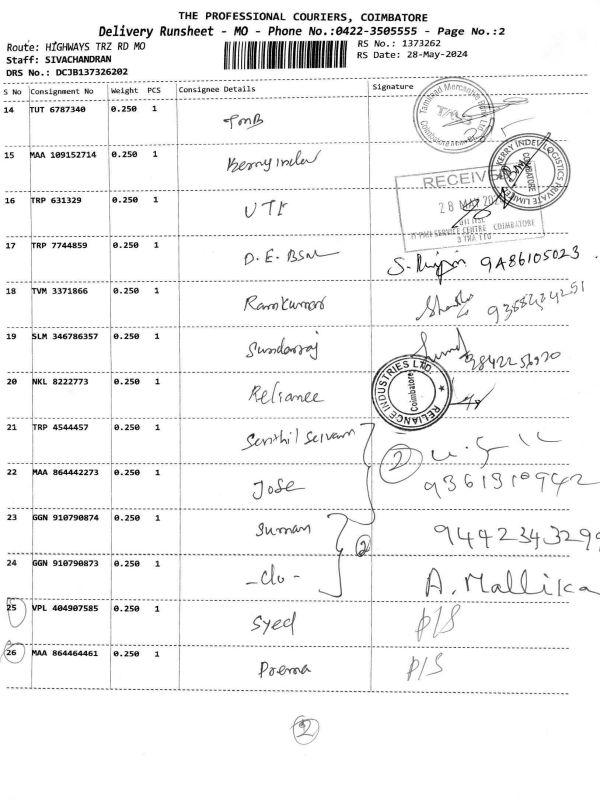 THE PROFESSIONAL COURIERS, COIMBATORE
Delivery Runsheet - MO - Phone No.:0422-3505555 - Page No.:2
Route: HIGHWAYS TRZ RD MO
RS No.: 1373262
Staff: SIVACHANDRAN
RS Date: 28-May-2024
DRS No.: DCJB137326202
S No Consignment No Weight PCS Consignee Details Signature
14 TUT 6787340 0.250 1 TMB
Coimbatore
15 MAA 109152714 0.250 1 Kerry Indev
KERRY INDEV LOGISTICS PRIVATE LIMITED
COIMBATORE
16 TRP 631329 0.250 1 UTI
RECEIVED
28 MAY 202
COIMBATORE
17 TRP 7744859 0.250 1 D.E. BSNL
18 TVM 3371866 0.250 1 Ramkumar
19 SLM 346786357 0.250 1 Sundarraj
20 NKL 8222773 0.250 1 Reliance
RELIANCE INDUSTRIES LTD.
Coimbatore
21 TRP 4544457 0.250 1 Senthil Selvam
2
22 MAA 864442273 0.250 1 Jose 9361910942
23 GGN 910790874 0.250 1 Suman 9442343299
2
24 GGN 910790873 0.250 1 -do- A. Mallika
25 VPL 404907585 0.250 1 Syed P/S
26 MAA 864464461 0.250 1 Prema P/S
2